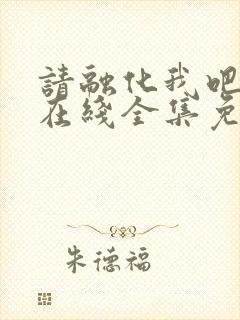 請融化我吧
在綫全集免
朱德福